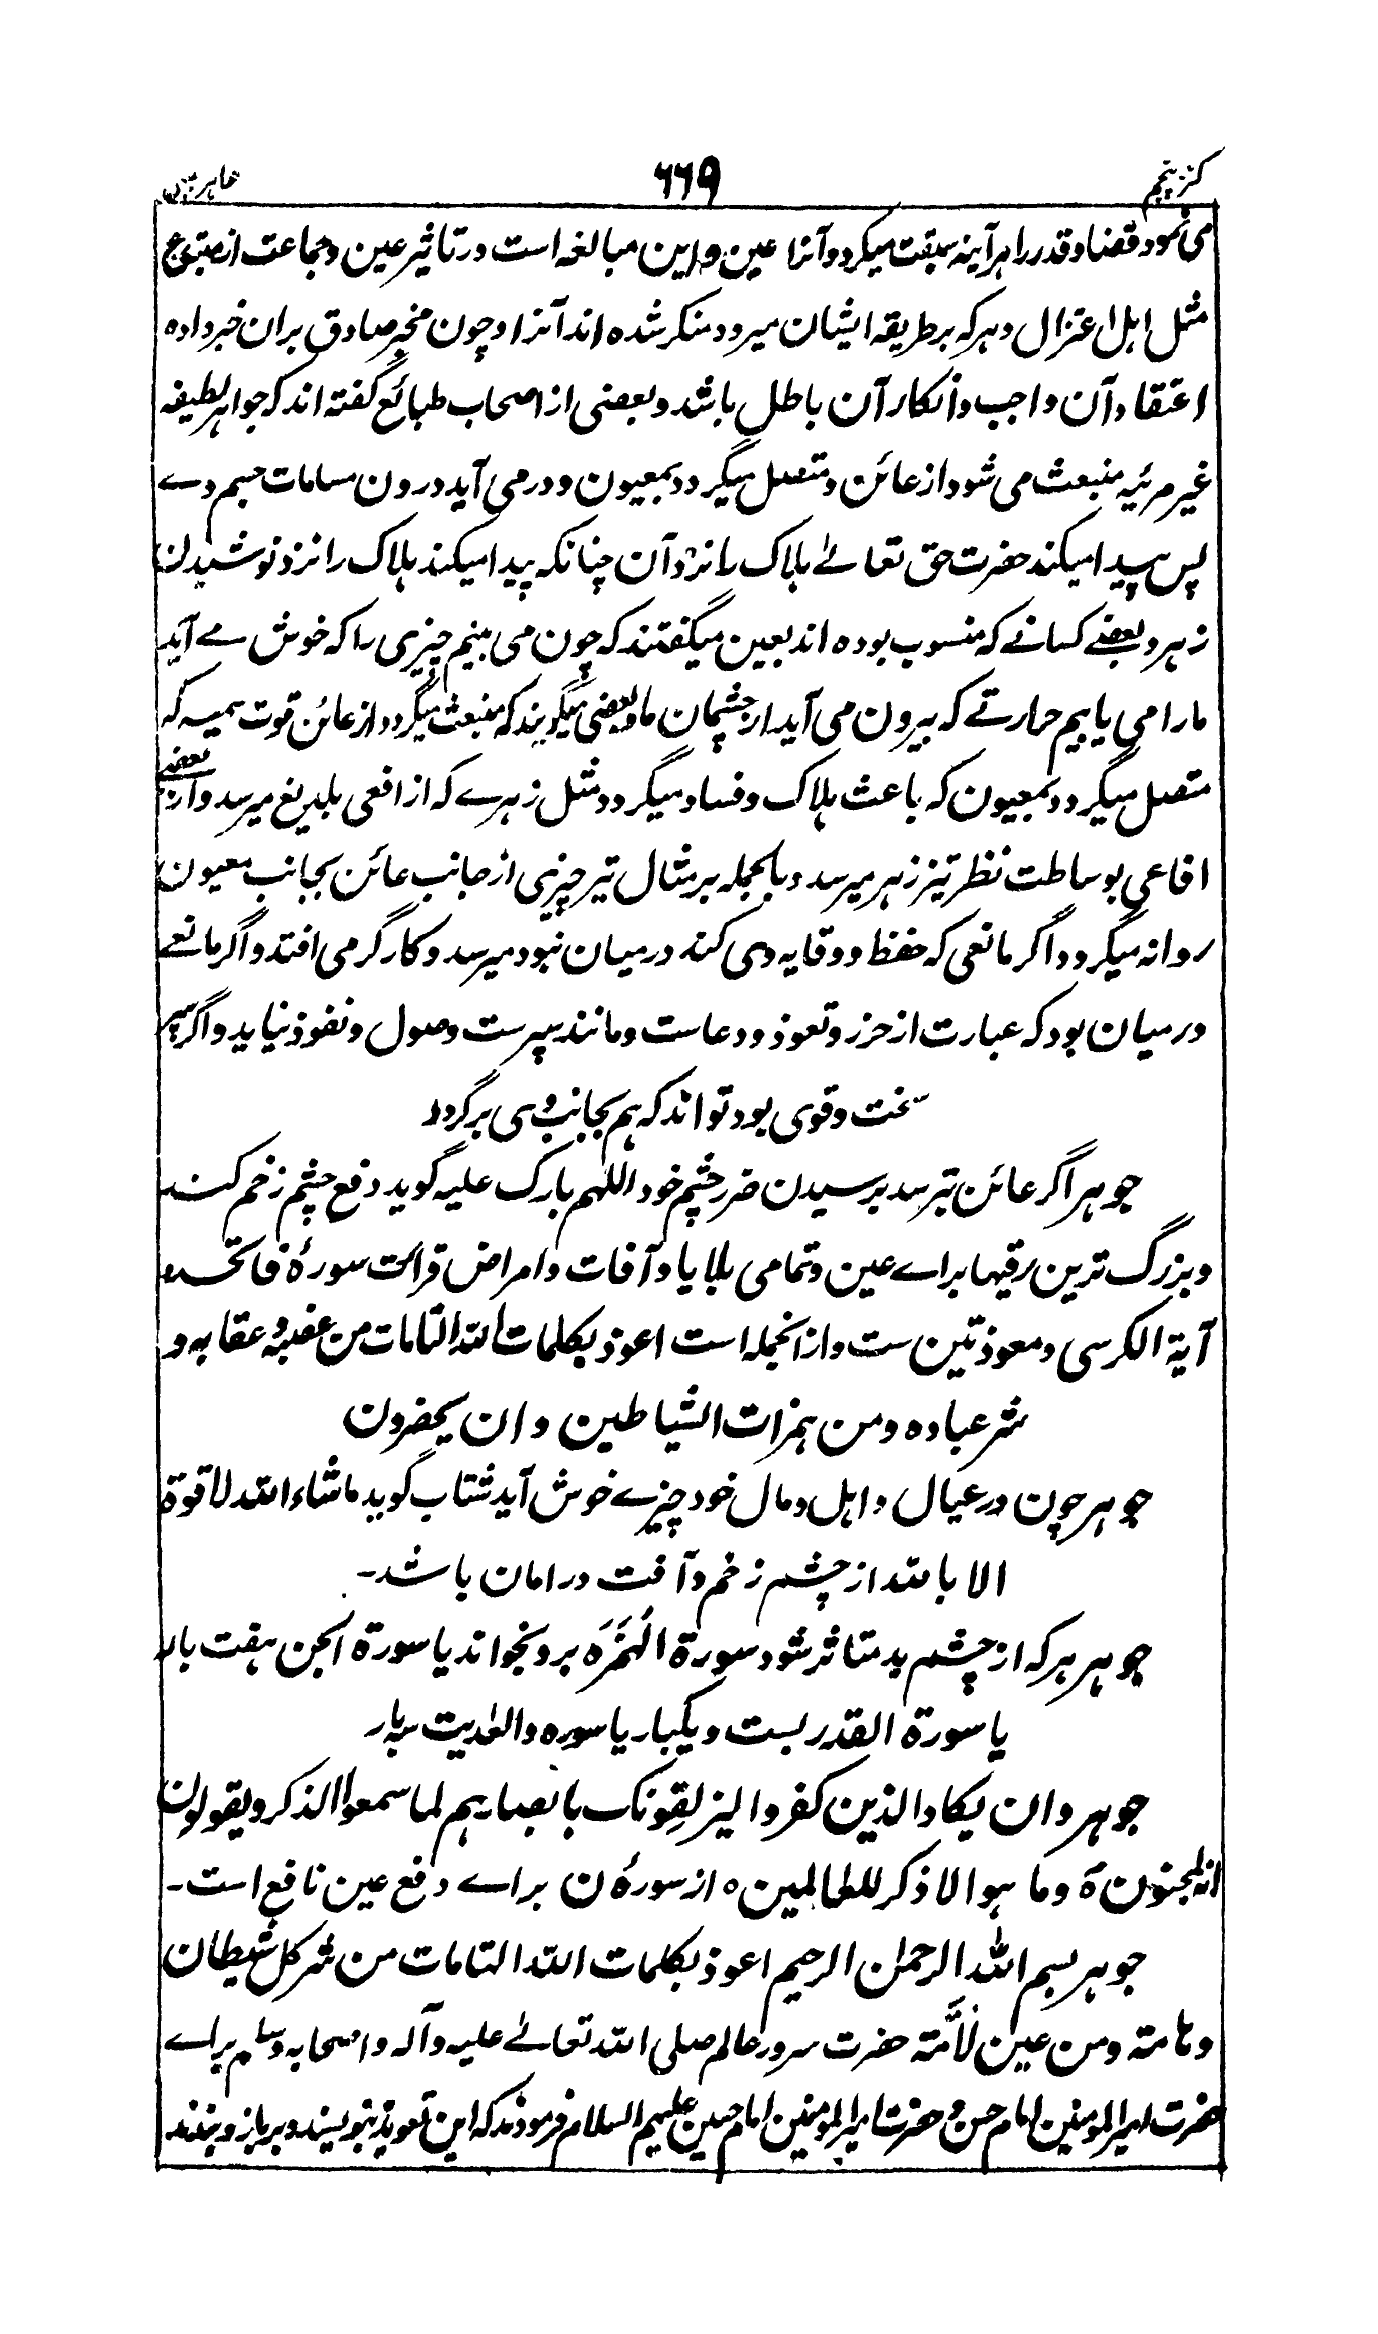 کنز پنجم
۶۶۹
می نمود قضا و قدر را هر آینه سبقت میکرد و آنرا عین و این مبالغه است در تاثیر عین و جماعت از مبتدع
مثل اهل اعتزال و هرکه بر طریقه ایشان میرود منکر شده اند آنرا و چون مخبر صادق بران خبر داده
اعتقاد آن واجب و انکار آن باطل باشد و بعضی از اصحاب طبائع گفته اند که جواهر لطیفه
غیر مرئیه منبعث می شود از عائن و متصل میگردد بمعیون و در می آید درون مسامات جسم وے
پس پیدا میکند حضرت حق تعالےٰ هلاک را نزد آن چنانکه پیدا میکند هلاک را نزد نوشیدن
زهر و بعضے کسانے که منسوب بوده اند بعین میگفتند که چون می بینم چیزی را که خوش مے آید
مارا می یابیم حرارتے که بیرون می آید از چشمان ما و بعضی میگویند که منبعث میگردد از عائن قوت سمیه که
متصل میگردد بمعیون که باعث هلاک و فساد میگردد مثل زهرے که از افعی بلدیغ میرسد و از بعضے
افاعی بوساطت نظر نیز زهر میرسد و بالجمله بر مثال تیر چیزی از جانب عائن بجانب معیون
روانه میگردد اگر مانعی که حفظ و وقایه وی کند درمیان نبود میرسد و کارگر می افتد و اگر مانعے
درمیان بود که عبارت از حرز و تعوذ و دعاست و مانند سپرست وصول و نفوذ نیابد و اگر سپر
سخت و قوی بود تواند که هم بجانب وی برگردد
جوهر اگر عائن بترسد برسیدن ضرر چشم خود اللهم بارک علیه گوید دفع چشم زخم کند
و بزرگ ترین رقیها براے عین و تمامی بلایا و آفات و امراض قرائت سورهٔ فاتحه و
آیة الکرسی و معوذتین ست و ازانجمله است اعوذ بکلمات الله التامات من غضبه و عقابه و
شر عباده و من همزات الشیاطین و ان یحضرون
جوهر چون در عیال و اهل و مال خود چیزے خوش آید شتاب گوید ماشاء الله لا قوة
الا بالله از چشم زخم و آفت در امان باشد۔
جوهر هرکه از چشم بد متاثر شود سورة الهُمَزَه برو بخواند یا سورة الجن هفت بار
یا سورة القدر بست و یکبار یا سوره والعٰدیت سه بار
جوهر و ان یکاد الذین کفروا لیزلقونک بابصارهم لما سمعوا الذکر و یقولون
انه لمجنون ۃ و ما هو الا ذکر للعالمین ہ از سورۂ ن براے دفع عین نافع است۔
جوهر بسم الله الرحمٰن الرحیم اعوذ بکلمات الله التامات من شر کل شیطان
و هامته و من عین لامَّته حضرت سرور عالم صلی الله تعالےٰ علیه و آله و اصحابه و سلم براے
حضرت امیر المومنین امام حسن و حضرت امیر المومنین امام حسین علیهم السلام فرمودند که این تعویذ بنویسند و بر بازو بندند